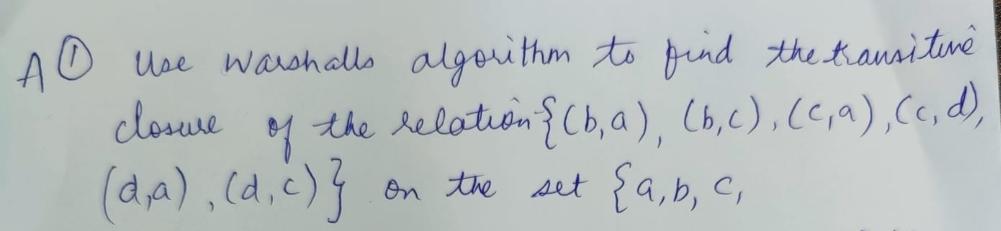 A ① Use Warshalls algorithm to find the transitive
closure of the relation {(b,a), (b,c), (c,a), (c,d),
(d,a), (d,c)} on the set {a,b,c,